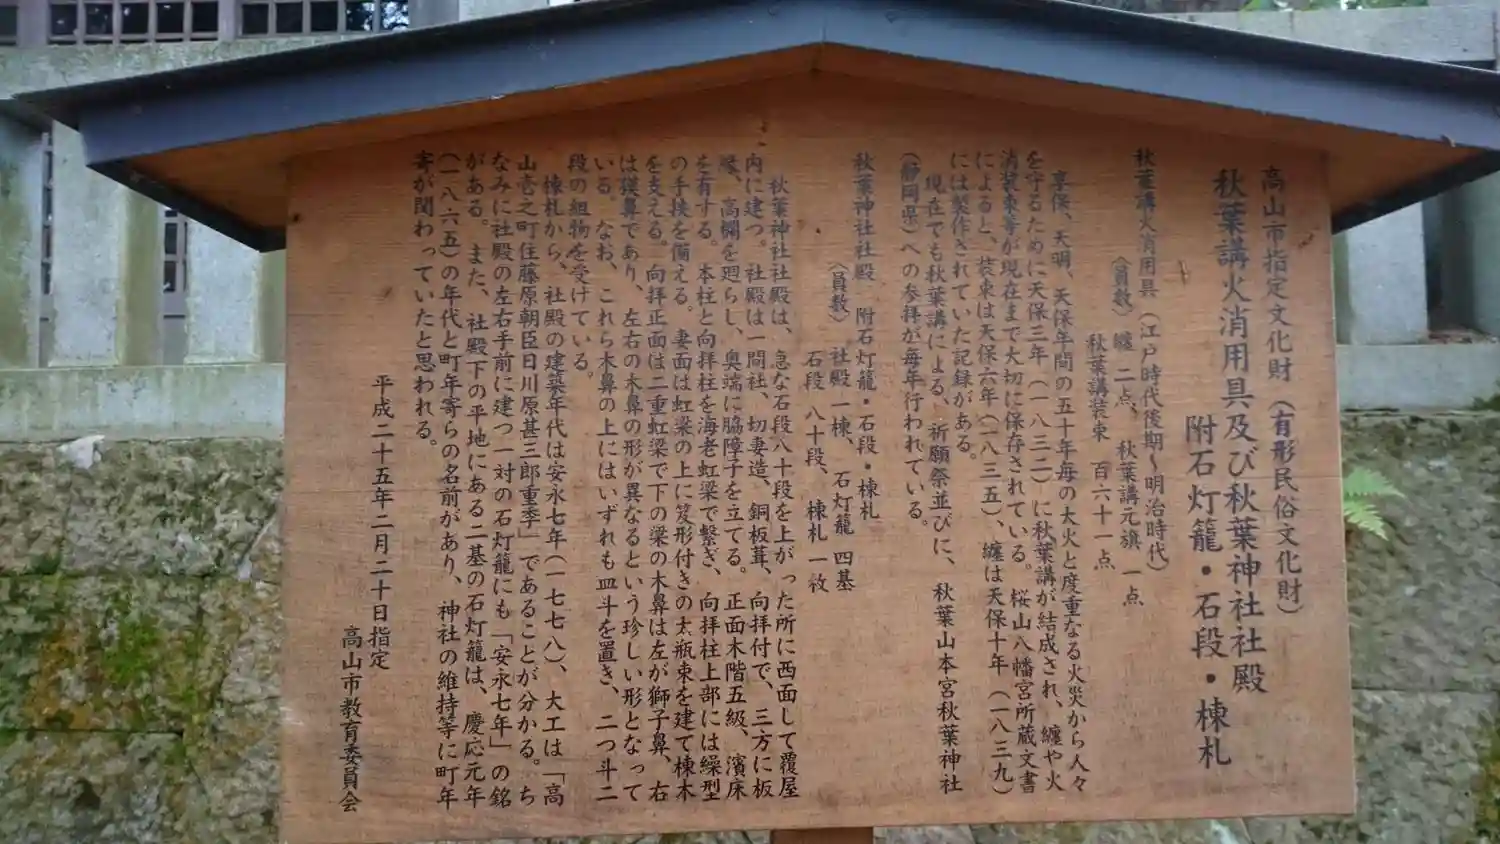 高山市指定文化財（有形民俗文化財）
秋葉講火消用具及び秋葉神社社殿
附石灯籠・石段・棟札
秋葉講火消用具（江戸時代後期～明治時代）
〈員数〉纏 二点、秋葉講元旗 一点
秋葉講装束 百六十一点
享保、天明、天保年間の五十年毎の大火と度重なる火災から人々
を守るために天保三年（一八三二）に秋葉講が結成され、纏や火
消装束等が現在まで大切に保存されている。桜山八幡宮所蔵文書
によると、装束は天保六年（一八三五）、纏は天保十年（一八三九）
には製作されていた記録がある。
現在でも秋葉講による、祈願祭並びに、秋葉山本宮秋葉神社
（静岡県）への参拝が毎年行われている。
秋葉神社社殿 附石灯籠・石段・棟札
〈員数〉社殿一棟、石灯籠 四基
石段 八十段、棟札 一枚
秋葉神社社殿は、急な石段八十段を上がった所に西面して覆屋
内に建つ。社殿は一間社、切妻造、銅板葺、向拝付で、三方に板
縁、高欄を廻らし、奥端に脇障子を立てる。正面木階五級、濱床
を有する。本柱と向拝柱を海老虹梁で繋ぎ、向拝柱上部には繰型
の手挟を備える。妻面は虹梁の上に笈形付きの太瓶束を建て棟木
を支える。向拝正面は二重虹梁で下の梁の木鼻は左が獅子鼻、右
は獏鼻であり、左右の木鼻の形が異なるという珍しい形となって
いる。なお、これら木鼻の上にはいずれも皿斗を置き、二つ斗二
段の組物を受けている。
棟札から、社殿の建築年代は安永七年（一七七八）、大工は「高
山壱之町住藤原朝臣日川原甚三郎重季」であることが分かる。ち
なみに社殿の左右手前に建つ一対の石灯籠にも「安永七年」の銘
がある。また、社殿下の平地にある二基の石灯籠は、慶応元年
（一八六五）の年代と町年寄らの名前があり、神社の維持等に町年
寄が関わっていたと思われる。
平成二十五年二月二十日指定
高山市教育委員会